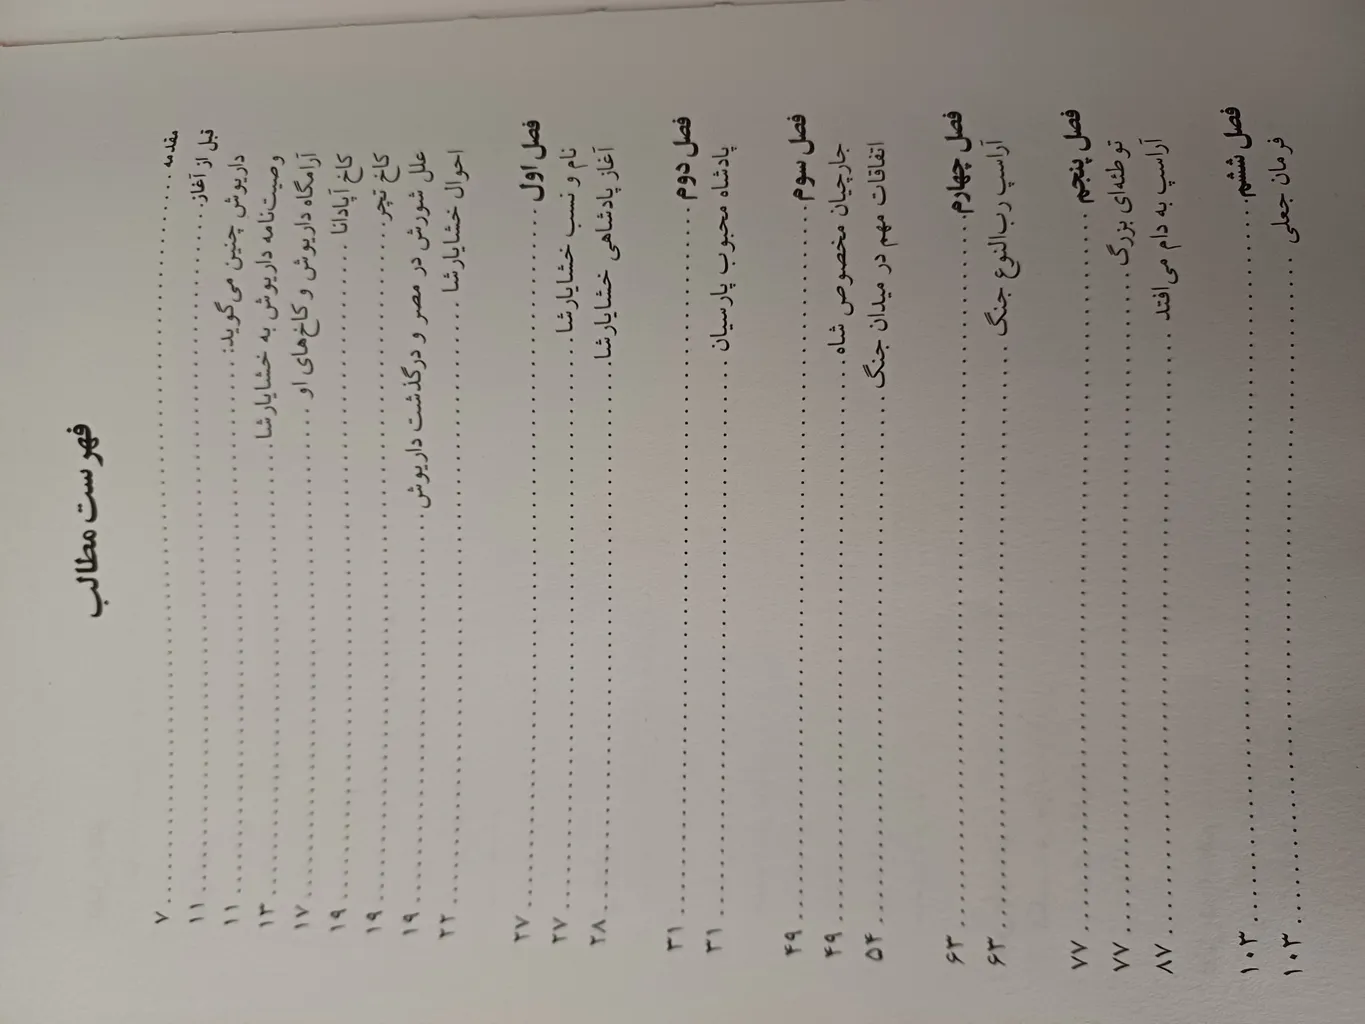 فهرست مطالب
مقدمه ........ ۷
قبل از آغاز ........ ۱۱
داریوش چنین می‌گوید: ........ ۱۱
وصیت‌نامه داریوش به خشایارشا ........ ۱۳
آرامگاه داریوش و کاخ‌های او ........ ۱۷
کاخ آپادانا ........ ۱۹
کاخ تچر ........ ۱۹
علل شورش در مصر و درگذشت داریوش ........ ۱۹
احوال خشایارشا ........ ۲۲
فصل اول ........ ۲۷
نام و نسب خشایارشا ........ ۲۷
آغاز پادشاهی خشایارشا ........ ۲۸
فصل دوم ........ ۳۱
پادشاه محبوب پارسیان ........ ۳۱
فصل سوم ........ ۴۹
جارچیان مخصوص شاه ........ ۴۹
اتفاقات مهم در میدان جنگ ........ ۵۴
فصل چهارم ........ ۶۳
آراسپ رب‌النوع جنگ ........ ۶۳
فصل پنجم ........ ۷۷
توطئه‌ای بزرگ ........ ۷۷
آراسپ به دام می‌افتد ........ ۸۷
فصل ششم ........ ۱۰۳
فرمان جعلی ........ ۱۰۳